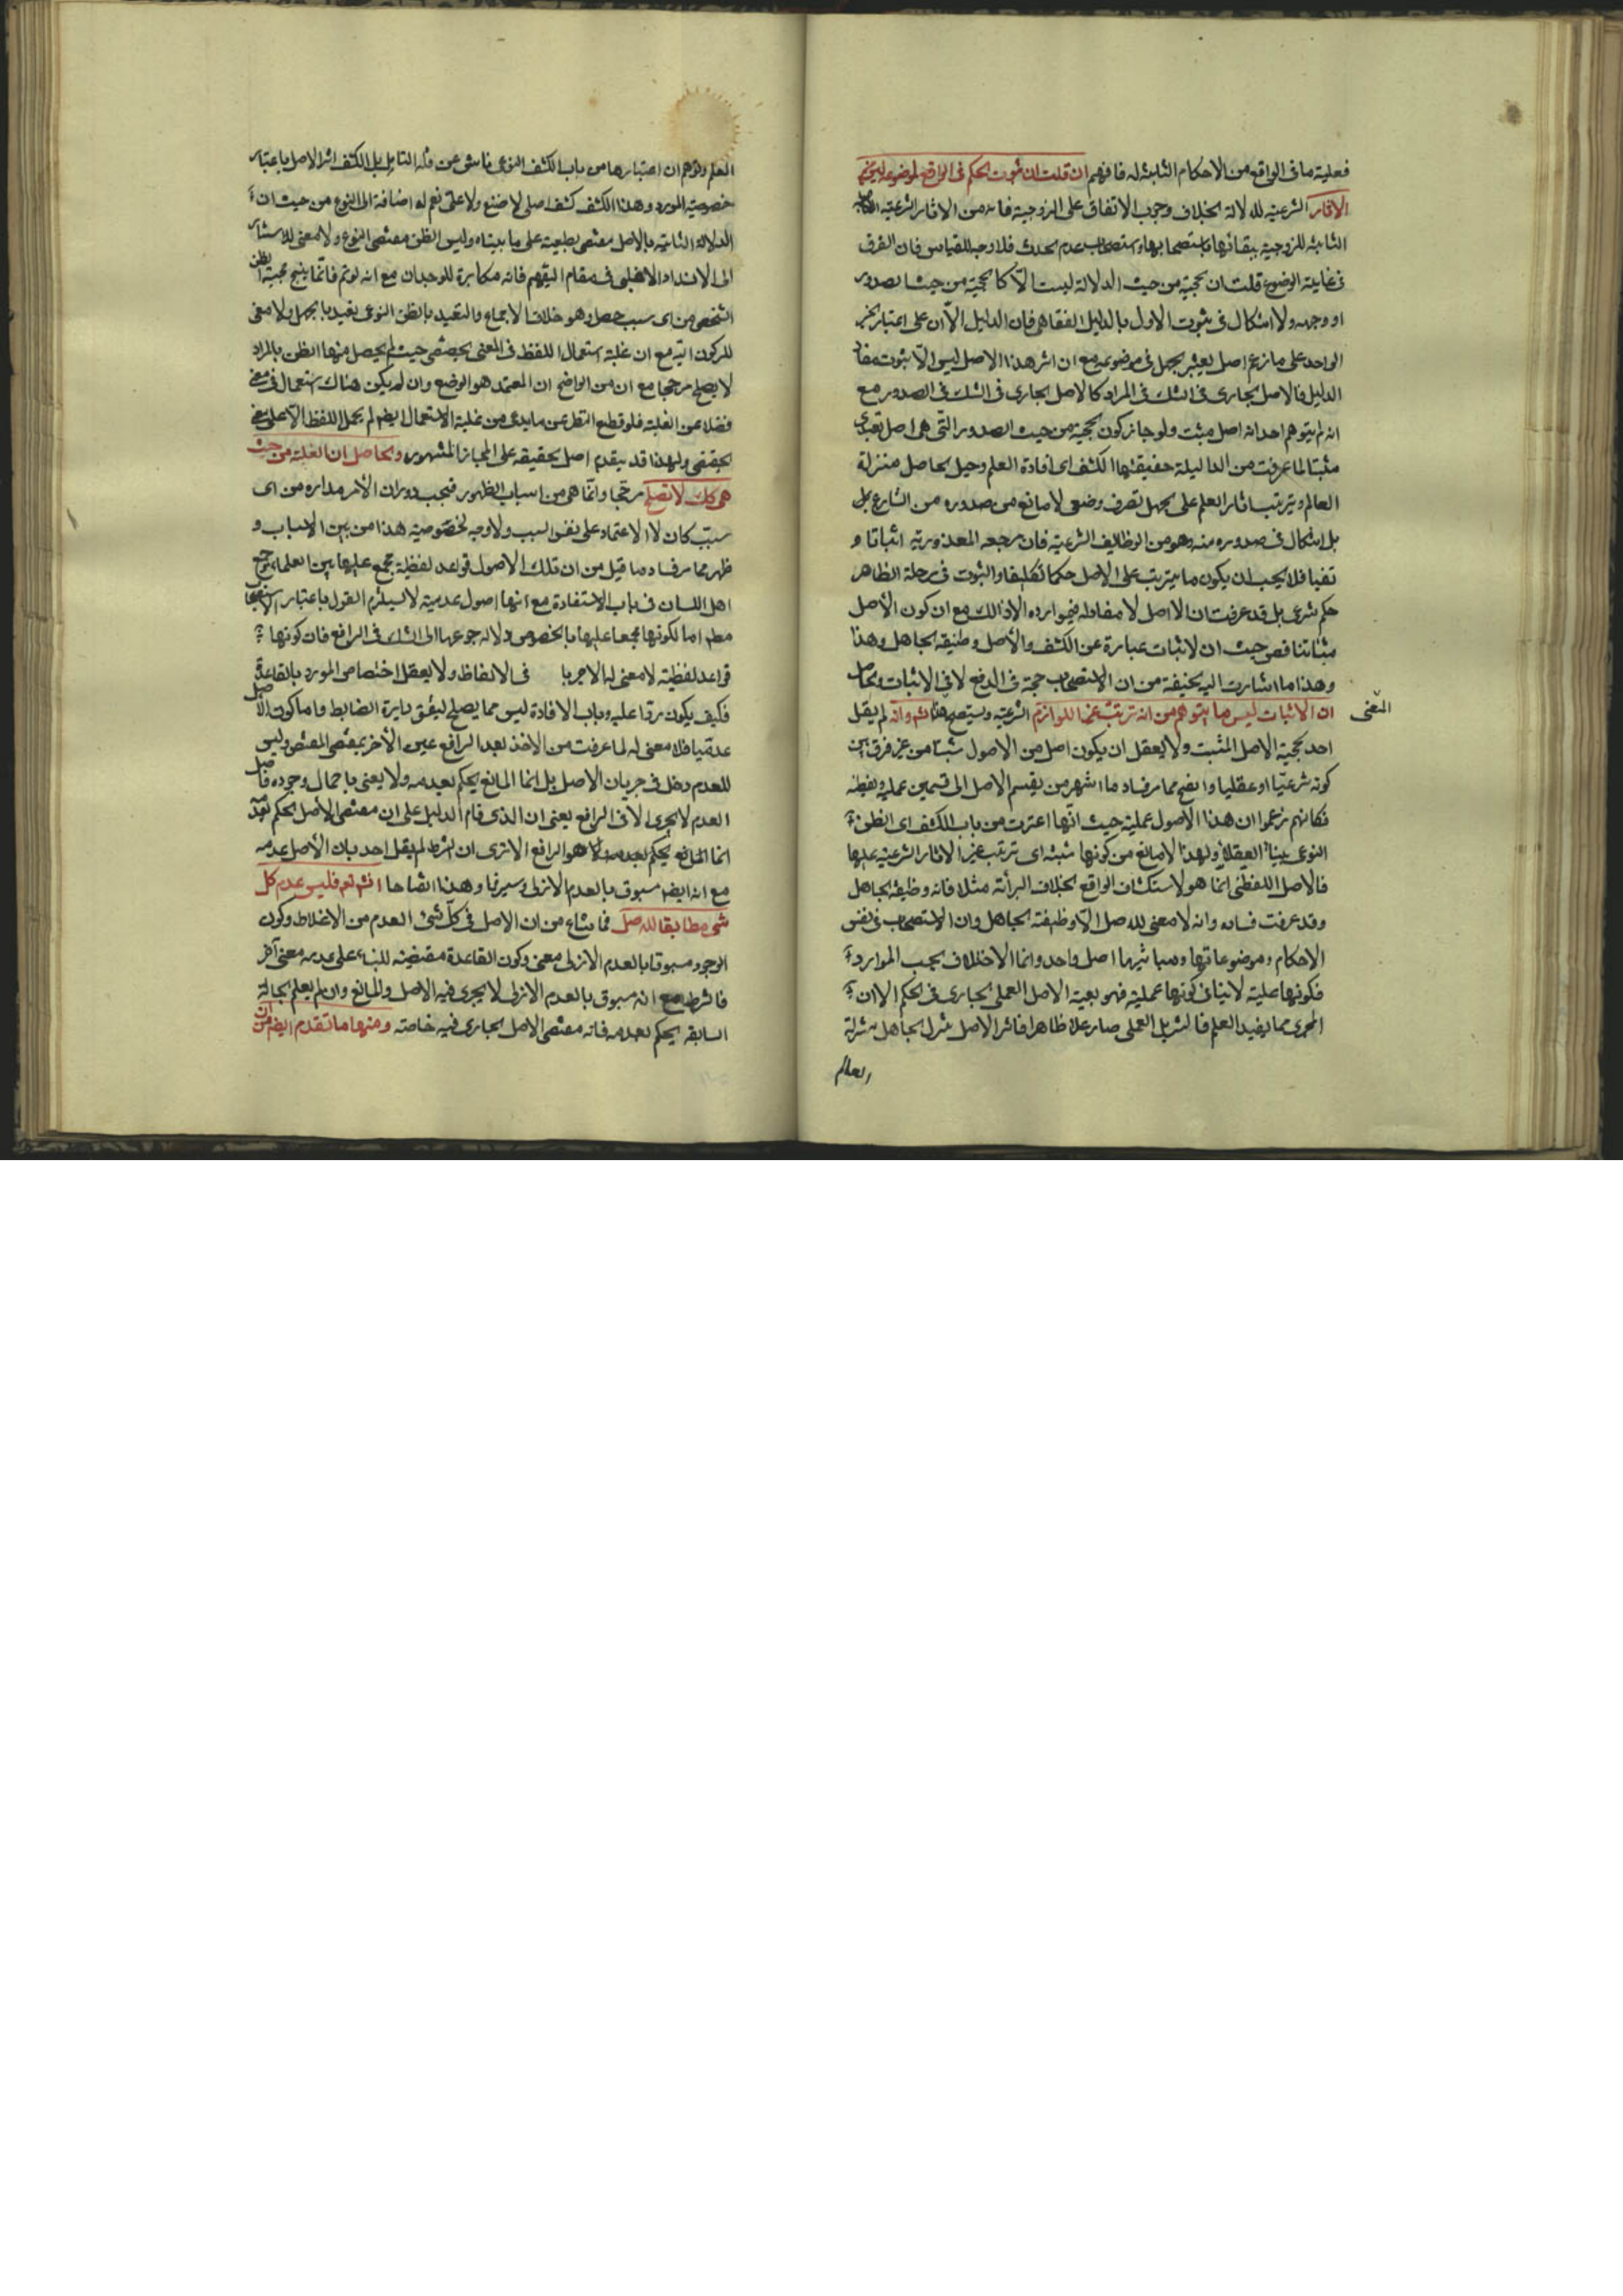 فعلية ما فى الواقع من الاحكام الثابتة له فافهم ان قلت ان ثبوت الحكم فى الواقع لموضوعه
الاثار الشرعية للدلالة بخلاف وجوب الاتفاق على الزوجية فانه من الاثار الشرعية
الثابتة للزوجية ببقائها باستصحابها واستصحاب عدم الحدث فلا وجه للقياس فان الفرق
فى غاية الوضوح قلت ان حجية من حيث الدلالة ليست الا كالحجية من حيث الصدور
او وجهه ولا اشكال فى ثبوت الاول بالدليل الفقاهى فان الدليل الان على اعتبار خبر
الواحد على ما زعم اصل يعتبر بجهل فى موضوعه مع ان اثر هذا الاصل ليس الا ثبوت مفاد
الدليل فالاصل الجارى فى الشك فى المراد كالاصل الجارى فى الشك فى الصدور مع
انه لم يتوهم احد انه اصل مثبت ولو جاز كون الحجية من حيث الصدور التى هى اصل تعبدى
مثبتا لما عرفت من الدليلية حقيقتها الكشف اى افادة العلم وجعل الحاصل منزلة
العالم وترتيب اثار العلم على الجهل تصرف وضعى لا مانع من صدوره من الشارع بل
بل اشكال فى صدوره منه وهو من الوظايف الشرعية فان مرجعه المعذورية اثباتا و
نفيا فلا يجب ان يكون ما يترتب على الاصل حكما تكليفا والثبوت فى مرحلة الظاهر
حكم شرعى بل قد عرفت ان الاصل لا مفاد له فيما اورده الا ذالك مع ان كون الأصل
مثبتا تناقض حيث ان الاثبات عبارة عن الكشف والأصل وظيفة الجاهل وهذا
وهذا ما اشارت اليه الحنيفة من ان الاستصحاب حجة فى الدفع لا فى الاثبات والحاصل
ان الاثبات ليس ما يتوهم من انه ترتيب غير اللوازم الشرعية ويستصح هذا ثم وانه لم يقل
احد بحجية الاصل المثبت ولا يعقل ان يكون اصل من الاصول مثبتا من غير فرق بين
كونه شرعيا او عقليا واتضح مما مر فساد ما اشتهر من تقسيم الاصل الى قسمين عملية ولفظية
فكانهم زعموا ان هذا الأصول عملية حيث انها اعتبرت من باب الكشف اى الظن
النوعى ببناء العقلاء ولهذا لا مانع من كونها مثبتة اى ترتب غير الاثار الشرعية عليها
فالاصل اللفظى انما هو لاستكشاف الواقع بخلاف البرائة مثلا فانه وظيفة الجاهل
وقد عرفت فساده وانه لا معنى للاصل الا وظيفة الجاهل وان الاستصحاب فى نفس
الاحكام وموضوعاتها ومباشيها اصل واحد وانما الاختلاف بحسب الموارد
فكونها عملية لا ينافى كونها عملية فهو بعينه الاصل العملى الجارى فى الحكم الا ان
المجرى مما يفيد العلم فالتنزيل العملى صار علما ظاهرا فاثر الاصل تنزل الجاهل منزلة
العالم
المعنى
العلم وتوهم ان اعتبارها من باب الكشف النوعى ناش عن قلة التامل بل الكشف اثر الاصل باعتبار
خصوصية المورد وهذا الكشف كشف اصلى لا صنع ولا على نعم له اضافة الى النوع من حيث ان
الدلالة الثابتة بالاصل مقتضى طبيعته على ما بيناه وليس الظن مقتضى النوع ولا معنى للاستناد
الى الانسداد الاغلبى فى مقام التفهم فانه مكابرة للوجدان مع انه لو تم فانما ينتج حجية الظن
الشخصى من اى سبب حصل وهو خلاف الاجماع والتقييد بالظن النوعى تقييد بالجهل ولا معنى
للركون اليه مع ان غلبة استعمال اللفظ فى المعنى الحقيقى حيث لم يحصل منها الظن بالمراد
لا يصلح مرجحا مع ان من الواضح ان المعتمد هو الوضع وان لم يكن هناك استعمال فى معنى
فضلا عن الغلبة فلو قطع النظر عن ما يدعى من غلبة الاستعمال ايضا لم يحمل اللفظ الا على معنى
الحقيقى ولهذا قد يقدم اصل الحقيقة على المجاز المشهور والحاصل ان الغلبة من حيث
هى كك لا تصلح مرجحا وانما هى من اسباب الظهور فيجب دوران الامر مداره من اى
سبب كان لا الاعتماد على نفس السبب ولا وجه لخصوصية هذا من بين الاسباب و
ظهر مما مر فساد ما قيل من ان تلك الاصول قواعد لفظية مجمع عليها بين العلماء
اهل اللسان فى باب الاستفادة مع انها اصول عدمية لا يستلزم القول باعتبار الاستصحاب
مطلقا اما لكونها مجمعا عليها بالخصوص ولا رجوعها الى الشك فى الرافع فان كونها
قواعد لفظية لا معنى لها الا جريها فى الالفاظ ولا يعقل اختصاص المورد بالقاعدة
فكيف يكون ردا عليه وباب الافادة ليس مما يصلح ليفق بايرة الضابط واما كون الاصل
عدميا فلا معنى له لما عرفت من الاخذ بعد الرافع عين الأخر بمقتضى المقتضى وليس
للعدم دخل فى جريان الاصل بل انما المانع يحكم بعدمه ولا يعنى باحتمال وجوده فاصل
العدم لا يجرى الا فى الرافع يعنى ان الذى قام الدليل على ان مقتضى الأصل الحكم بعدمه
انما المانع يحكم بعدمه هو الرافع الا ترى ان الشرط لم يقل احد بان الأصل عدمه
مع انه ايضا مسبوق بالعدم الازلى وسيرنا وهذا ايضاحا انشاء تعم فليس عدم كل
شئ مطابقا للاصل فما شاع من ان الاصل فى كل شئ العدم من الاغلاط وكون
الوجود مسبوقا بالعدم الازلى معنى وكون القاعدة مقتضية للبناء على عدمه معنى آخر
فالشرط مع انه مسبوق بالعدم الازلى لا يجرى فيه الاصل والمانع وان لم يعلم الحالة
السابقة يحكم بعدمه فانه مقتضى الاصل الجارى فيه خاصة ومنها ما تقدم ايضا من ان